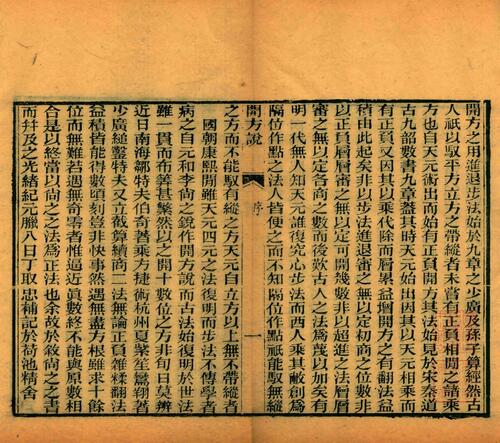 開方之用進退步法始於九章之少廣及孫子算經然古
人祇以馭平方立方之帶縱者未嘗有正負相間之諸乘
方也自天元術出而始有正負開方其法始見於宋秦道
古九韶數書九章蓋其時天元始出因其以天元相乘而
有正負又因其以乘代除而層累益增開方之有翻法益
積由此起矣非以步法進退審之無以定初商之位數非
以正負層層審之無以定可開幾數非以超進之法層層
審之無以定各商之數而後歎古人之法爲蔑以加矣有
明一代無人知天元誰復究心步法而西人乘其敝創爲
隔位作點之法人皆便之而不知隔位作點祇能馭無縱
開方說
序
一
之方而不能馭有縱之方天元自立方以上無不帶縱者
國朝康熙間雖天元四元之法復明而步法不傳學者
病之自元和李尚之銳作開方說而古法始復明於世法
雖一貫而布算甚繁然以之開十數位之方非旬日莫辨
近日南海鄒特夫伯奇著乘方捷術杭州夏紫笙鸞翔著
少廣縋鑿特夫又立截算續商二法無論正負雜糅翻法
益積皆能得數頃刻豈非快事然遇無盡方根雖求十餘
位而無難若遇無奇零者惟逼近眞數終不能與原數相
合是以終當以尚之之法爲正法也余故於敘尚之之書
而幷及之光緒紀元臘八日丁取忠補記於荷池精舍